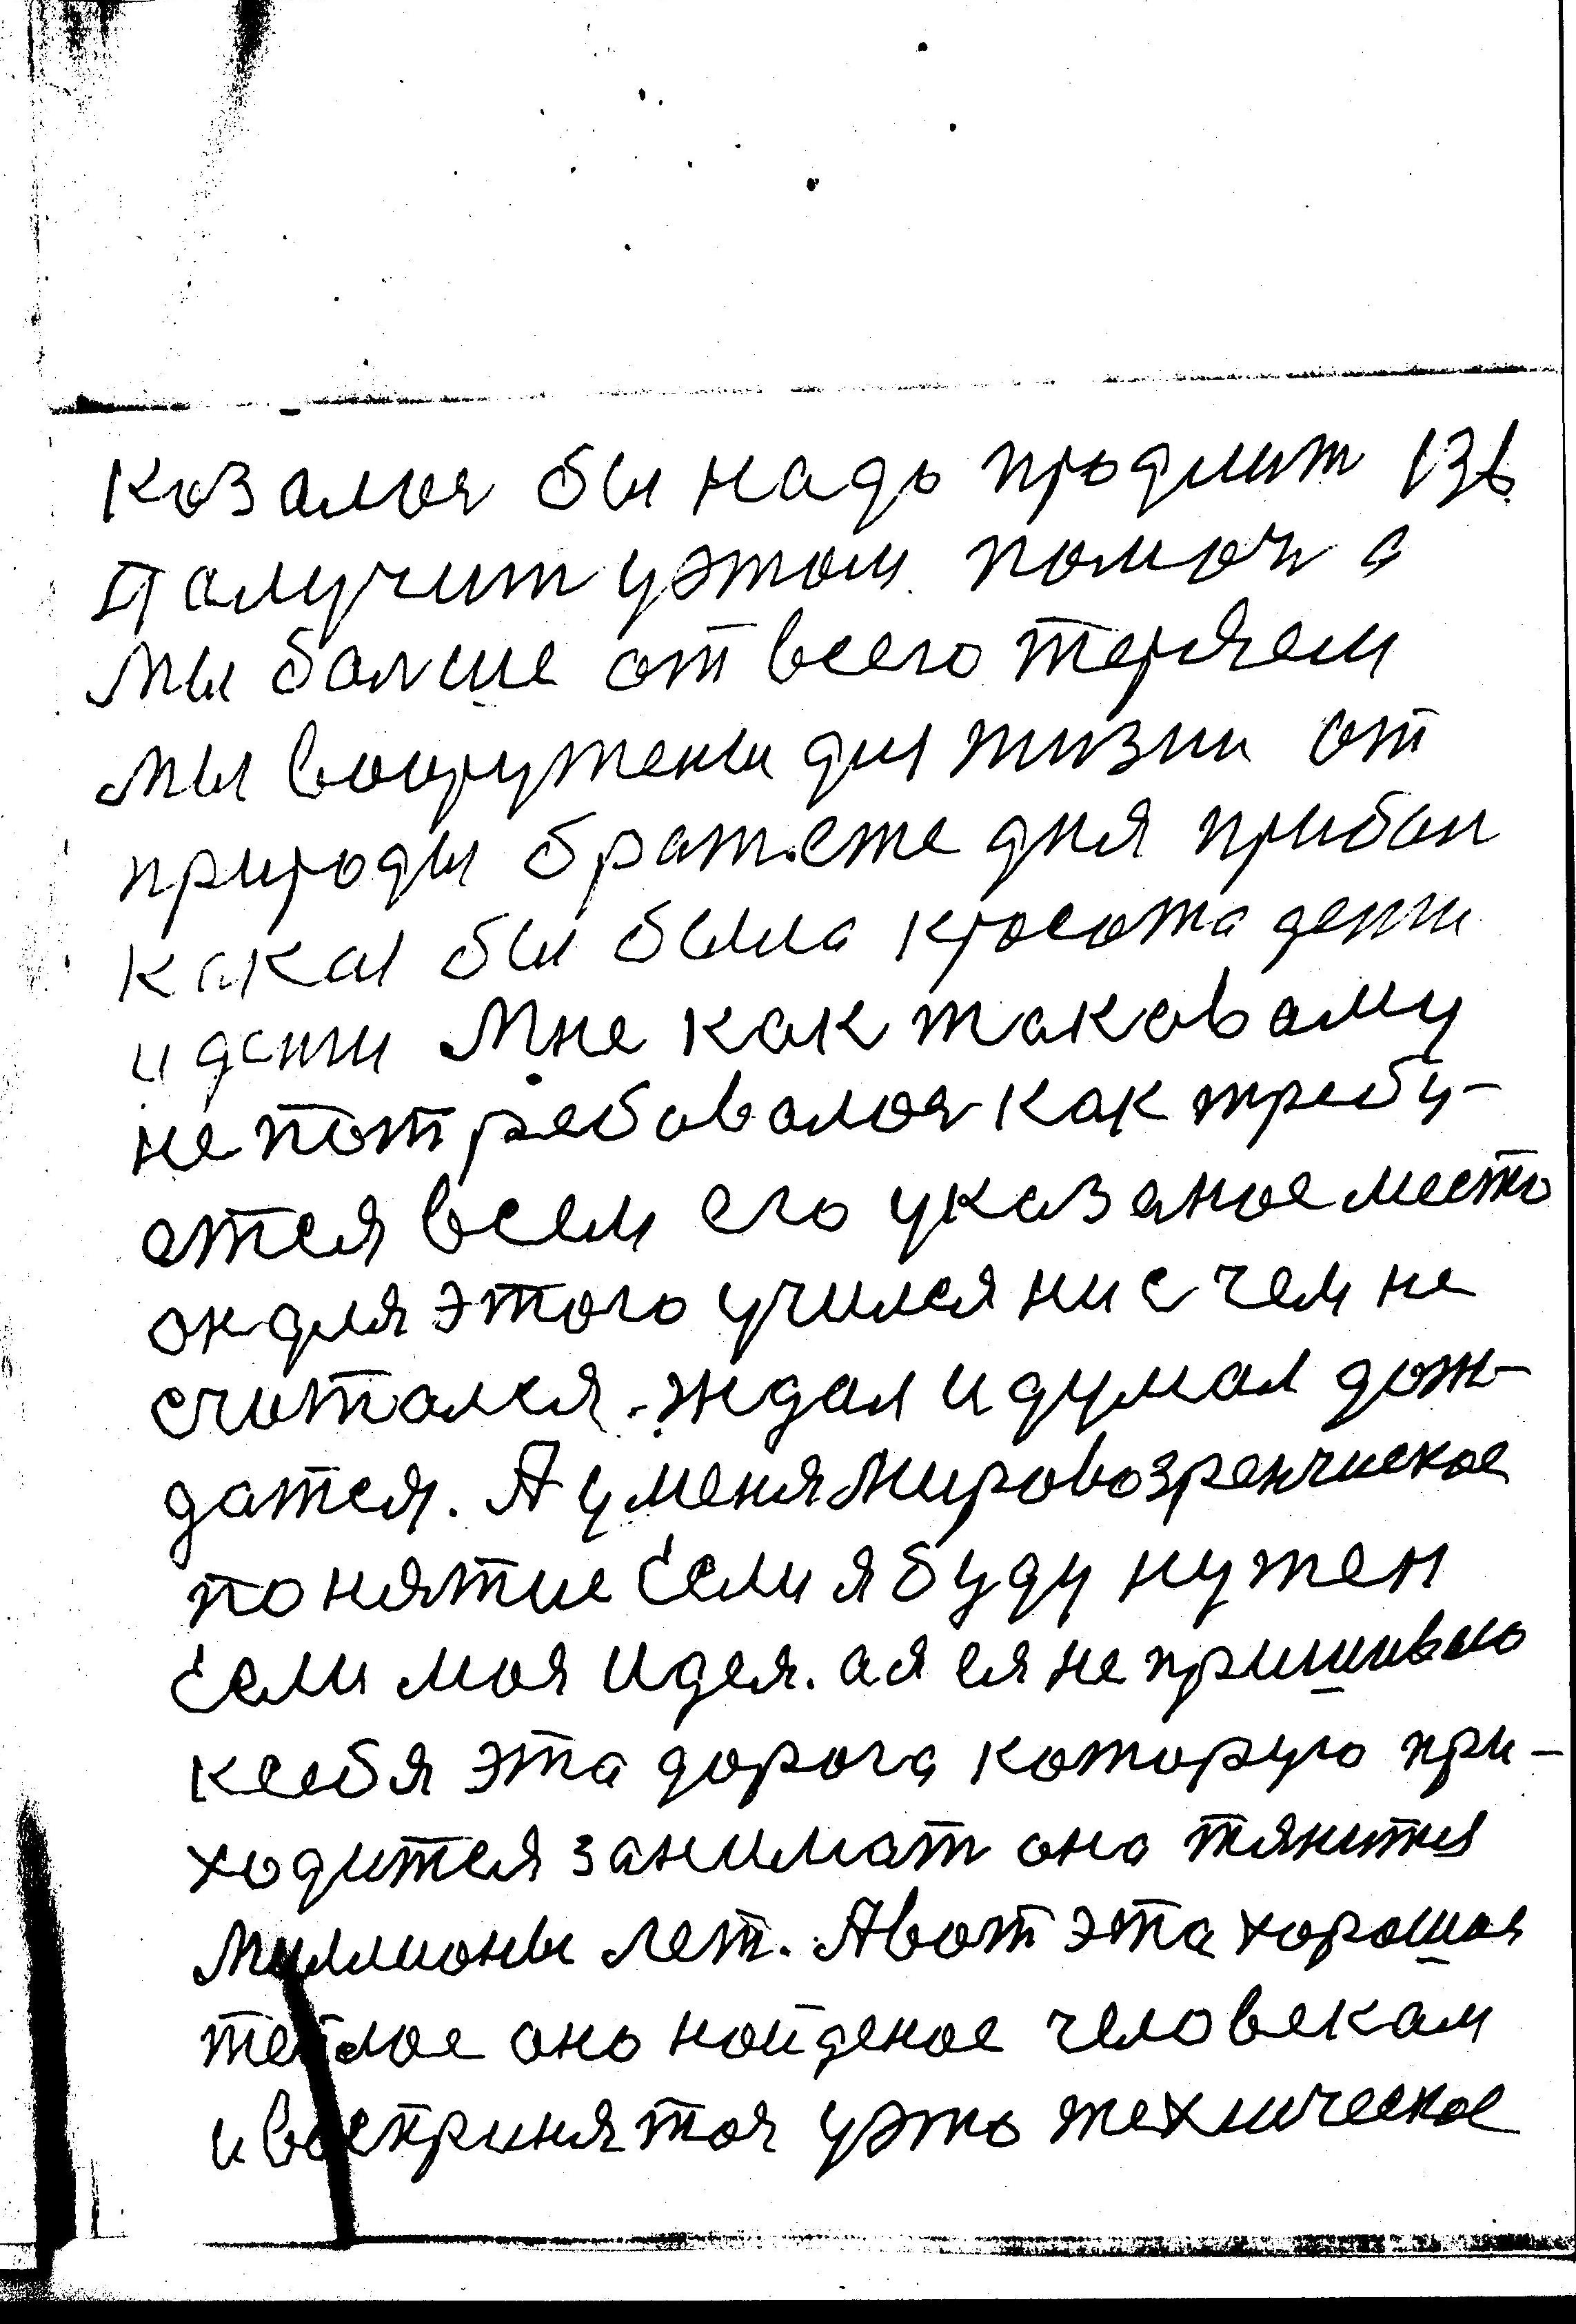 козалоя бы надо продлит 136
Получит уэтом помоч а
мы балше от всего теряем
мы вооружены для жизни от
природы братесте дня прибои
какая бы была красота денти
и денти Мне как таковаму
не потребавалоя как требу-
ется всем его указаное место
он для этого учился ни с чем не
считался. ждал и думал дож-
датся. А у меня мировозренчиское
понятие Если я буду нужен
Если моя идея. а я ея не пришиваю
ксебя эта дорога которую при-
ходится занимат она тянится
миллионы лет. А вот эта хорошоя
теплое оно нойденое человекам
и воспринятоя уэто техническое